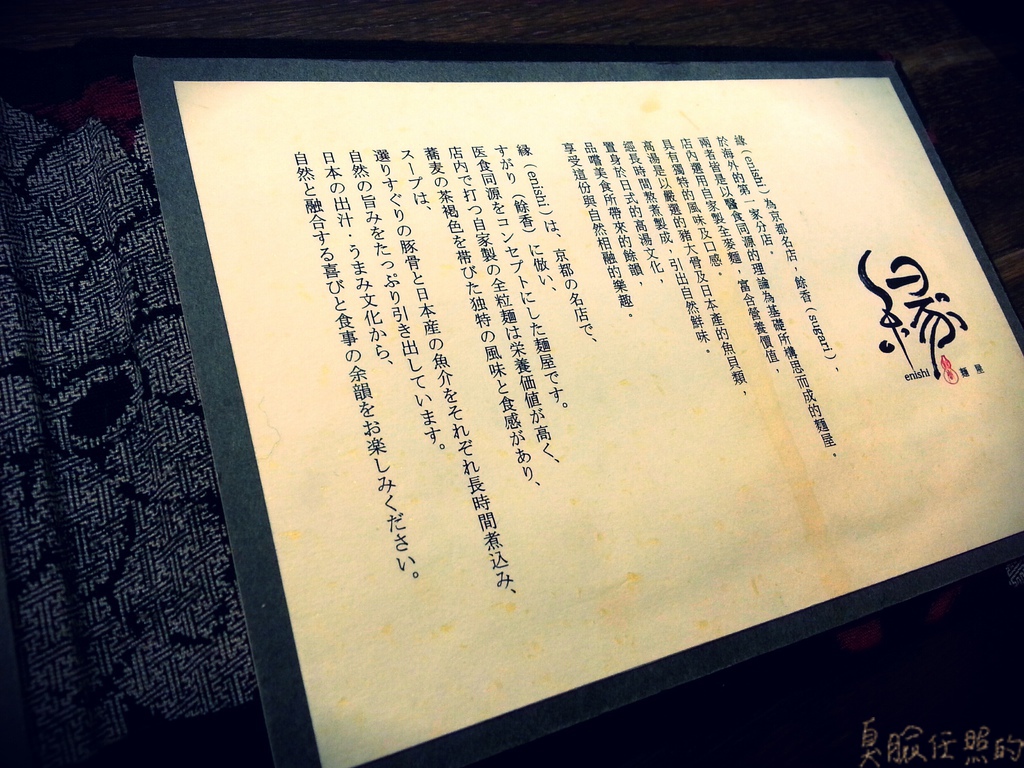 緣
enishi
麵屋
緣(enishi)為京都名店，餘香(sugari)，
於海外的第一家分店。
兩者皆是以醫食同源的理論為基礎所構思而成的麵屋。
店內選用自家製全麥麵，富含營養價值，
具有獨特的風味及口感。
高湯是以嚴選的豬大骨及日本產的魚貝類，
經長時間熬煮製成，引出自然鮮味。
置身於日式的高湯文化，
品嚐美食所帶來的餘韻，
享受這份與自然相融的樂趣。
縁(enishi)は、京都の名店で、
すがり(餘香)に倣い、
医食同源をコンセプトにした麺屋です。
店内で打つ自家製の全粒麺は栄養価値が高く、
蕎麦の茶褐色を帯びた独特の風味と食感があり、
スープは、
選りすぐりの豚骨と日本産の魚介をそれぞれ長時間煮込み、
自然の旨みをたっぷり引き出しています。
日本の出汁・うまみ文化から、
自然と融合する喜びと食事の余韻をお楽しみください。
臭臉任照的